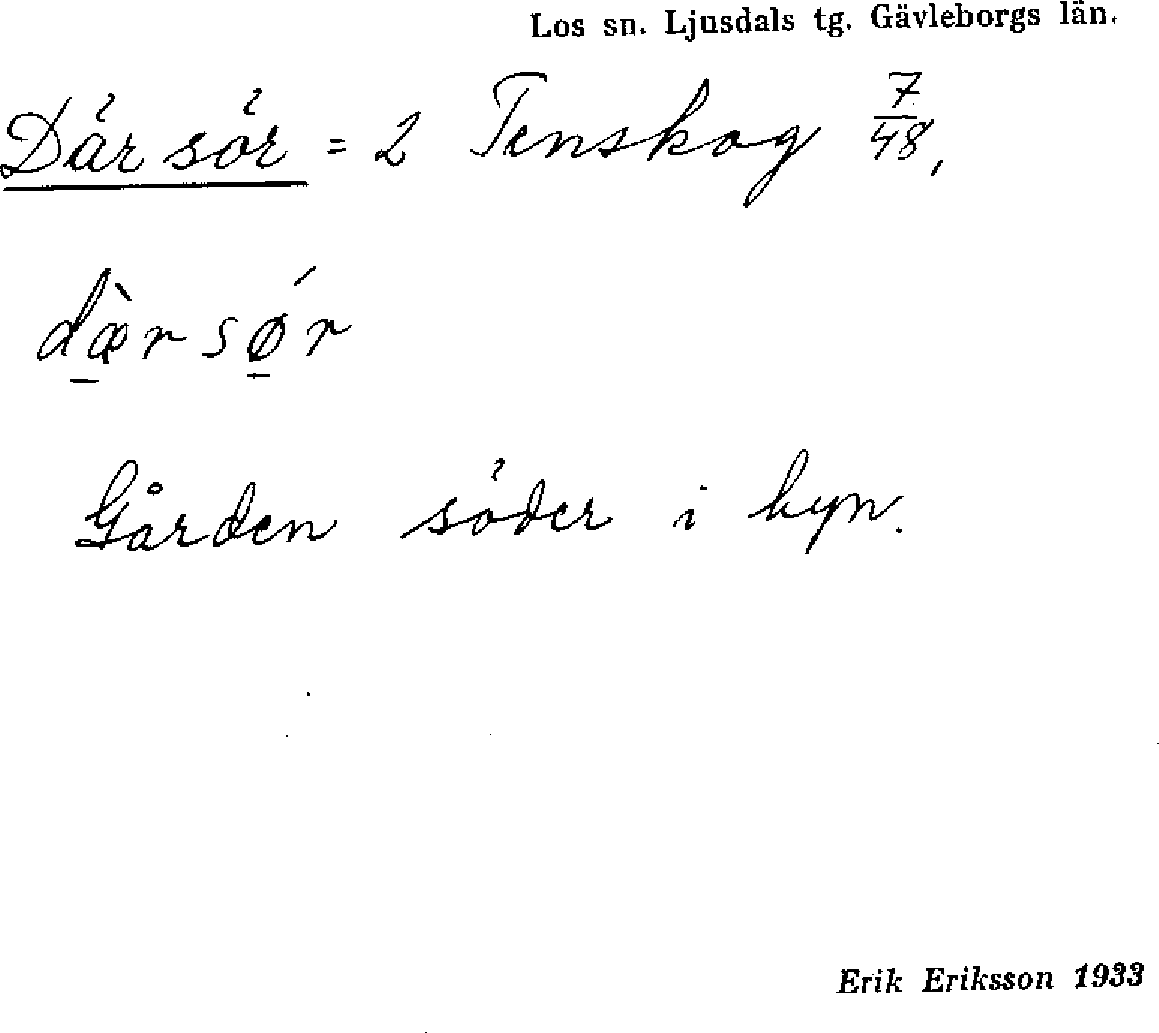 Los sn. Ljusdals tg. Gävleborgs län.
Där sör = 2 Tenskog 7/48,
dæ̀r sǿr
Gården söder i byn.
Erik Eriksson 1933